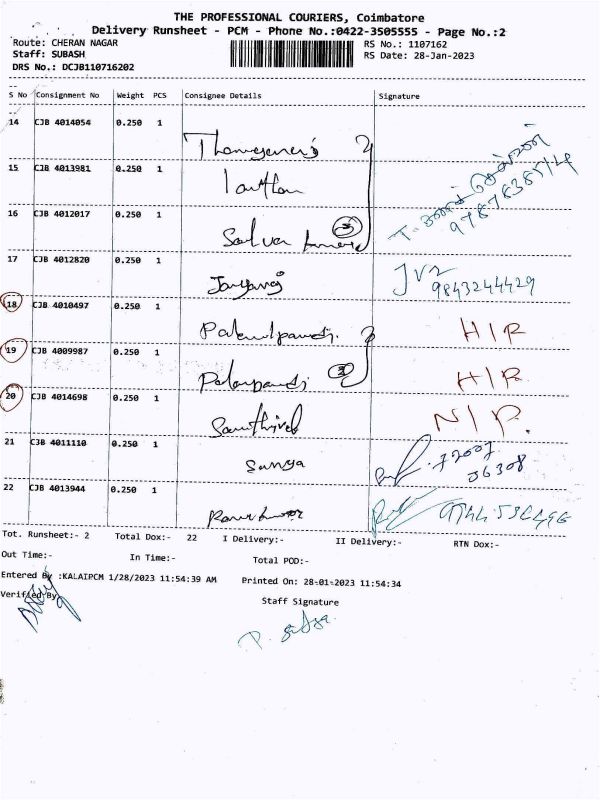 THE PROFESSIONAL COURIERS, Coimbatore
Delivery Runsheet - PCM - Phone No.:0422-3505555 - Page No.:2
Route: CHERAN NAGAR RS No.: 1107162
Staff: SUBASH RS Date: 28-Jan-2023
DRS No.: DCJB110716202
S No Consignment No Weight PCS Consignee Details Signature
14 CJB 4014054 0.250 1
15 CJB 4013981 0.250 1
16 CJB 4012017 0.250 1 3
17 CJB 4012820 0.250 1 9843244429
18 CJB 4010497 0.250 1 H/R
19 CJB 4009987 0.250 1 2 H/R
20 CJB 4014698 0.250 1 N/P.
21 CJB 4011110 0.250 1 Sanya 72007
06308
22 CJB 4013944 0.250 1
Tot. Runsheet:- 2 Total Dox:- 22 I Delivery:- II Delivery:- RTN Dox:-
Out Time:- In Time:- Total POD:-
Entered By :KALAIPCM 1/28/2023 11:54:39 AM Printed On: 28-01-2023 11:54:34
Verified By Staff Signature